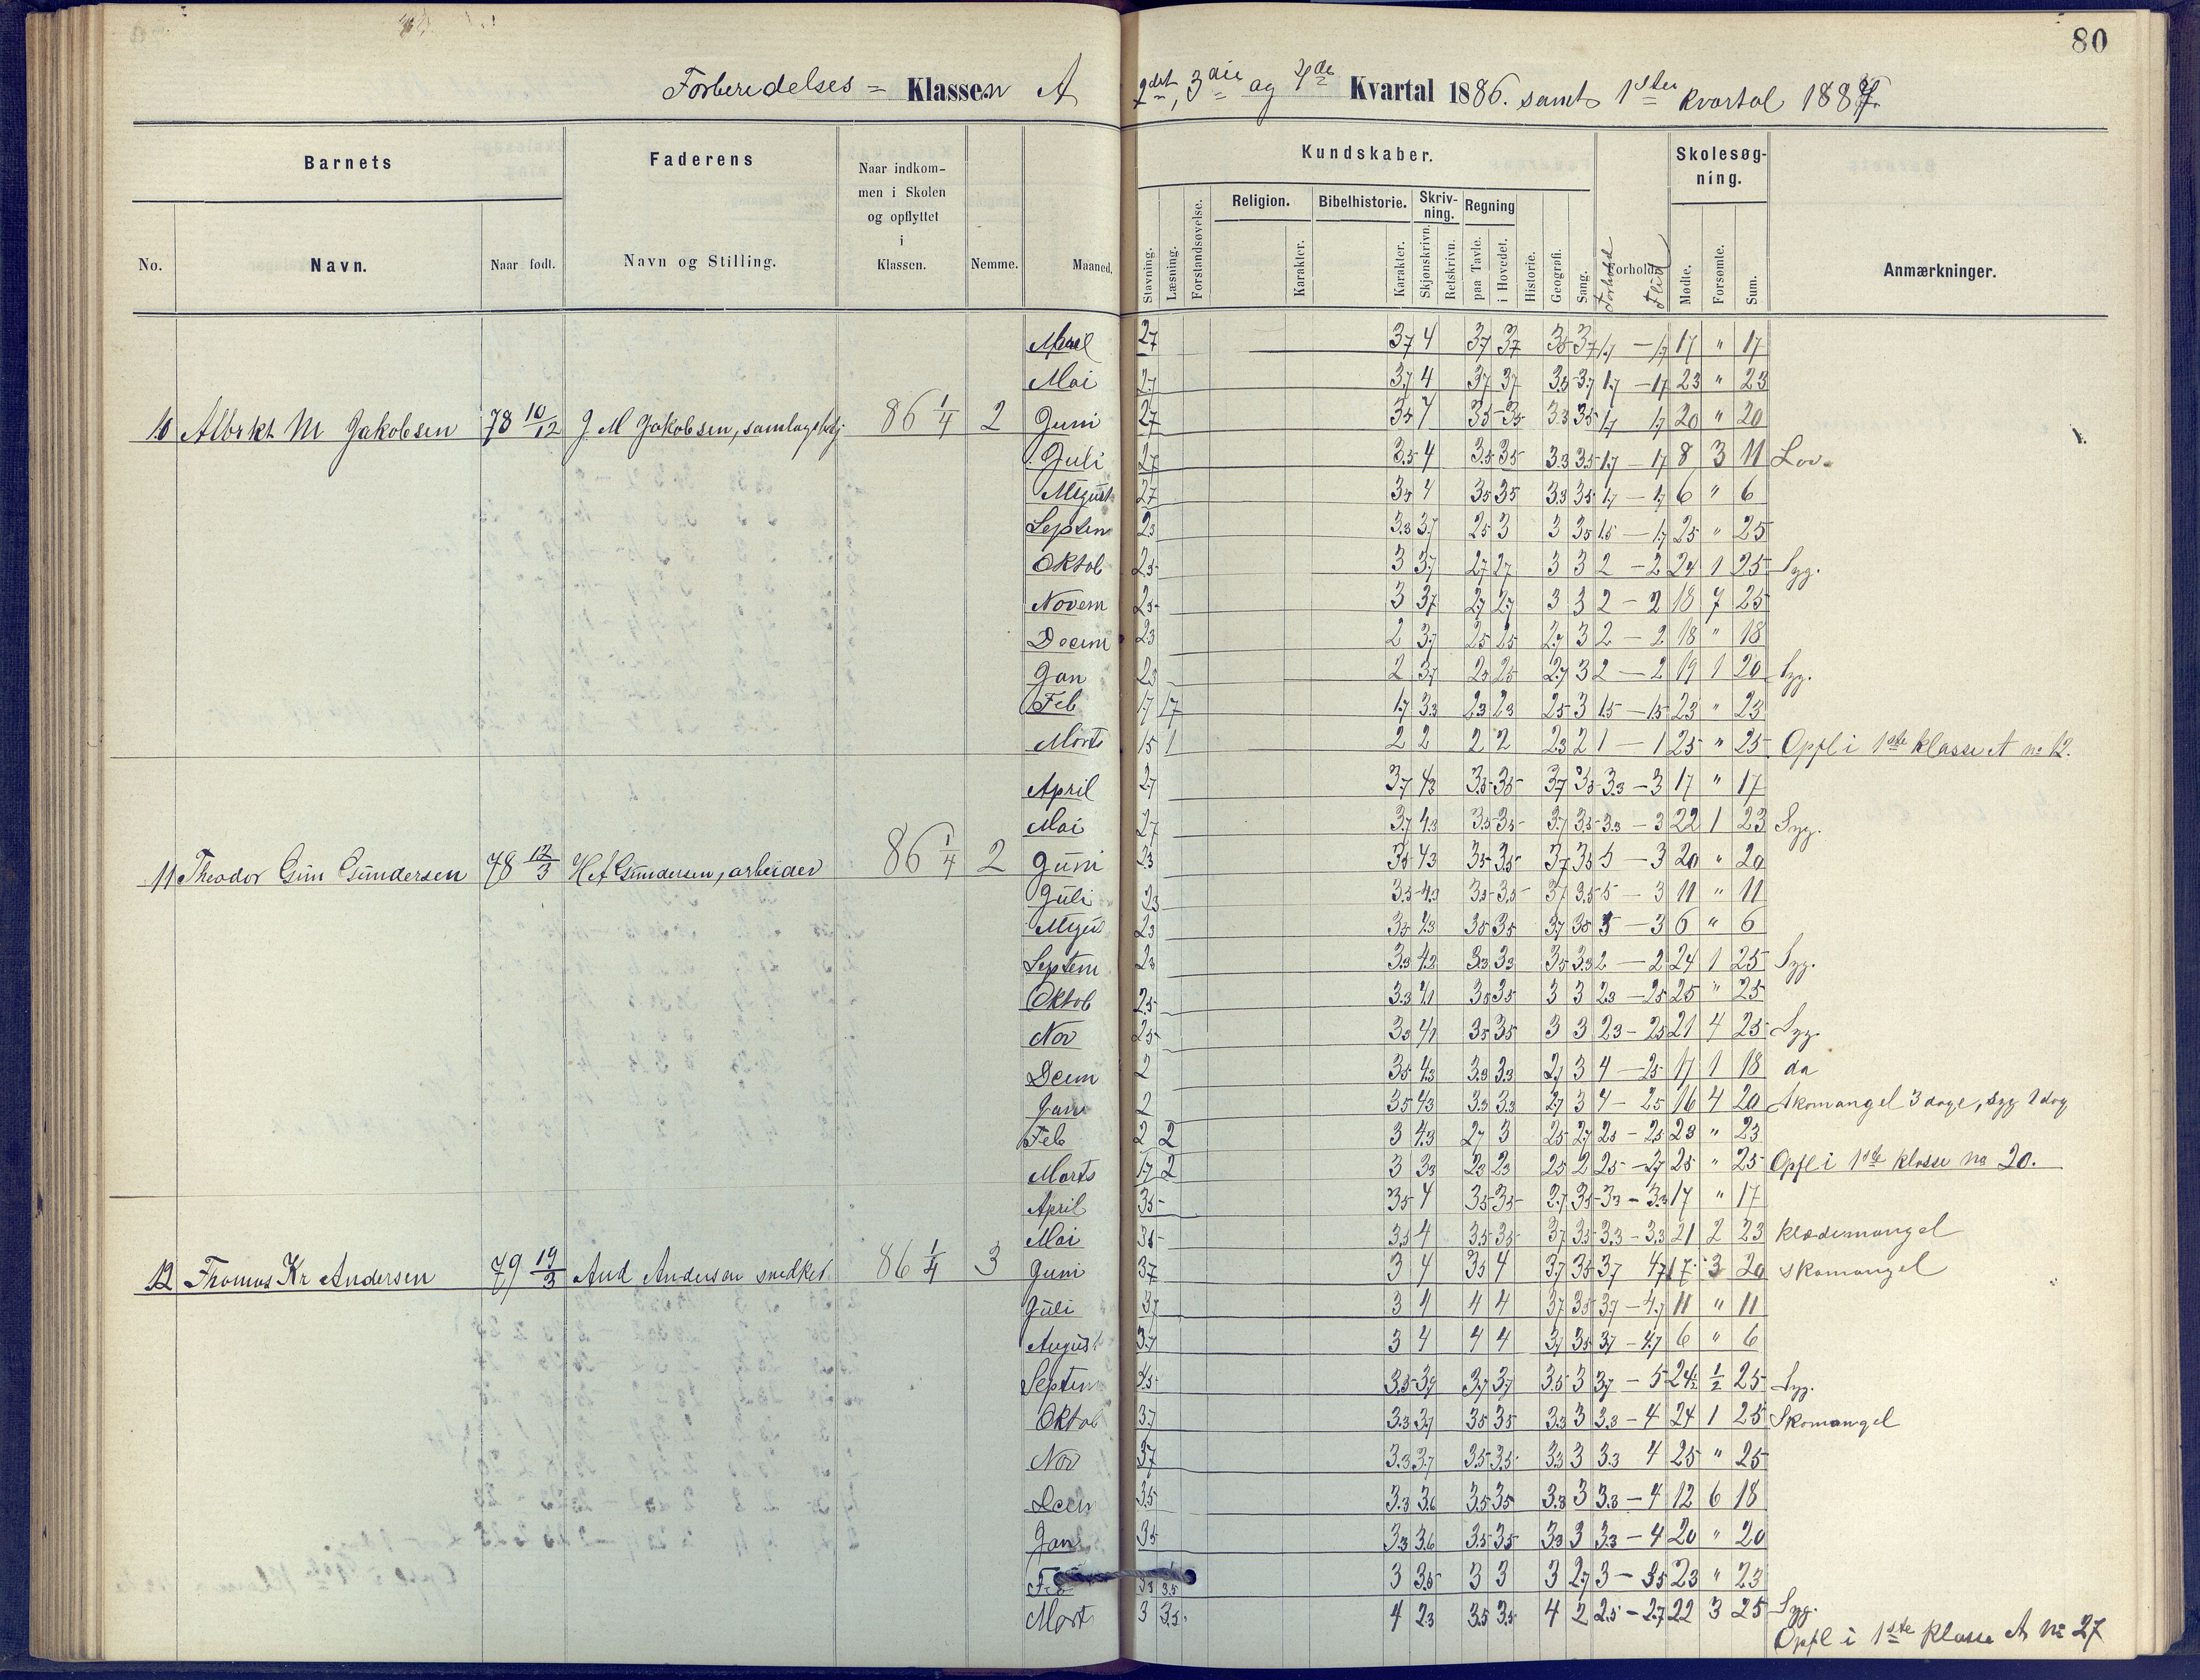 80
Forberedelses = Klassen A 2det, 3die og 4de Kvartal 1886. samt 1ste kvartal 1887.
Barnets Faderens Naar indkommen i Skolen og opflyttet i Klassen. Nemme. Maaned. Kundskaber. Skolesøgning. Anmærkninger.
No. Navn. Naar født. Navn og Stilling. Stavning. Læsning. Forstandsøvelse. Religion. Karakter. Bibelhistorie. Karakter. Skrivning. Skjønskrivn. Retskrivn. Regning paa Tavle. i Hovedet. Historie. Geografi. Sang. Forhold. Forhold Flid Mødte. Forsømte. Sum.
April 27 37 4 37 37 35 37 17 — 17 17 " 17
Mai 27 37 4 37 37 35 37 17 — 17 23 " 23
10 Albrkt M Jakobsen 78 10/12 J. M Jakobsen, 86 1/4 2 Juni 27 35 4 35 35 33 35 17 17 20 " 20
Juli 27 3.5 4 3.5 35 3.3 3.5 17 — 17 8 3 11 Lov.
August 27 35 4 35 35 33 35 17 — 17 6 " 6
Septem 23 3.3 37 25 3 3 35 15 — 17 25 " 25
Oktob 25 3 37 27 27 3 3 2 — 2 24 1 25 Syg.
Novem 25 3 37 27 27 3 3 2 — 2 18 7 25
Decem 23 2 37 25 25 27 3 2 — 2 18 " 18
Jan 23 2 37 25 25 27 3 2 — 2 19 1 20 Syg.
Feb 17 17 17 33 23 23 25 3 15 — 15 23 " 23
Marts 15 1 2 2 2 2 23 2 1 — 1 25 " 25 Opfl i 1ste klasse A no 12.
April 27 37 43 35 35 37 35 3.3 — 3 17 " 17
Mai 27 37 43 35 35 37 35 3.3 — 3 22 1 23 Syg.
11 Theodor Gun Gundersen 78 12/3 H A Gundersen, arbeider 86 1/4 2 Juni 23 35 43 35 35 37 35 5 — 3 20 " 20
Juli 23 3.5 43 35 35 37 35 5 — 3 11 " 11
August 23 35 43 35 35 37 35 5 — 3 6 " 6
Septem 23 33 42 33 33 35 33 2 — 2 24 1 25 Syg.
Oktob 25 33 41 35 35 3 3 23 — 25 25 " 25
Nov 25 35 41 35 35 3 3 23 — 25 21 4 25 Syg.
Decm 2 35 43 33 33 27 3 4 — 25 17 1 18 da
Janu 2 35 43 33 33 27 3 4 — 25 16 4 20 Skomangel 3 dage, syg 1 dag
Feb 2 2 3 43 27 3 25 27 25 — 25 23 " 23
Marts 17 2 3 33 23 23 25 2 25 — 27 25 " 25 Opfl i 1ste klasse no 20.
April 35 35 4 35 35 37 35 33 — 33 17 " 17
Mai 35 35 4 35 35 37 35 33 — 33 21 2 23 klædemangel
12 Thomas Kr Andersen 79 19/3 And Andersen snedker 86 1/4 3 Juni 37 3 4 35 4 37 35 37 47 17 3 20 skomangel
Juli 37 3 4 4 4 37 35 37 — 47 11 " 11
August 37 3 4 4 4 37 35 37 — 47 6 " 6
Septem 45 3.5 39 37 37 35 3 37 — 5 24½ ½ 25 Syg.
Oktob 37 33 37 35 35 33 3 33 — 4 24 1 25 Skomangel
Nov 37 3.3 37 35 35 33 3 33 4 25 " 25
Decem 35 3.3 36 35 35 33 3 33 — 4 12 6 18
Jan 35 33 36 35 35 33 3 33 — 4 20 " 20
Feb 33 35 3 35 3 3 3 27 3 — 35 23 " 23
Mart 3 35 4 23 35 35 4 2 25 — 27 22 3 25 Syg.
Opfl i 1ste klasse A no 27